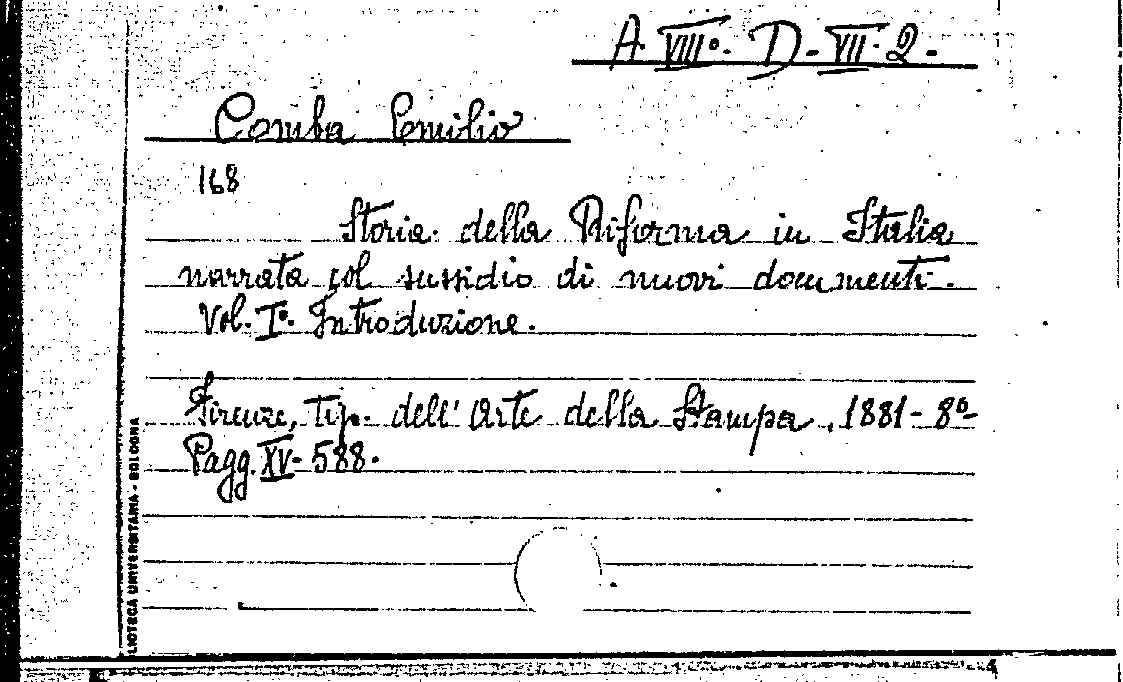 A. VIII°. D. VII. 2.
Comba Emilio
168
Storia della Riforma in Italia
narrata col sussidio di nuovi documenti.
Vol. I°. Introduzione.
Firenze, tip. dell' Arte della Stampa, 1881 - 8°-
Pagg. XV - 588.
LIOTECA UNIVERSITARIA - BOLOGNA